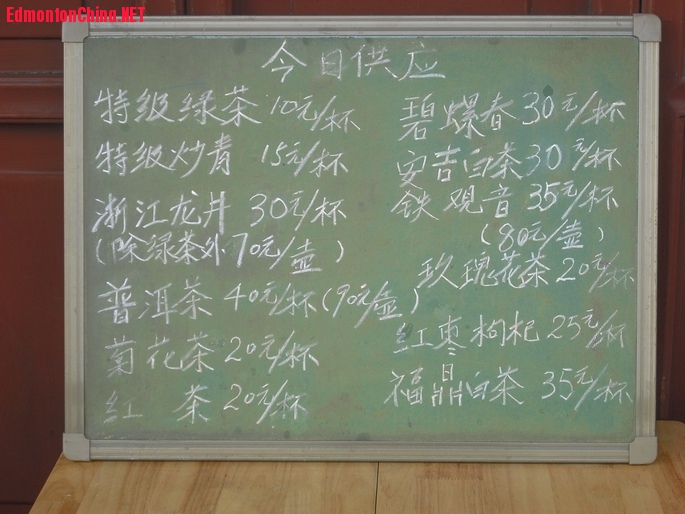 EdmontonChina.NET
今日供应
特级绿茶 10元/杯
特级炒青 15元/杯
浙江龙井 30元/杯
(除绿茶外70元/壶)
普洱茶 40元/杯(90元/壶)
菊花茶 20元/杯
红 茶 20元/杯
碧螺春 30元/杯
安吉白茶 30元/杯
铁观音 35元/杯
(80元/壶)
玫瑰花茶 20元/杯
红枣枸杞 25元/杯
福晶白茶 35元/杯